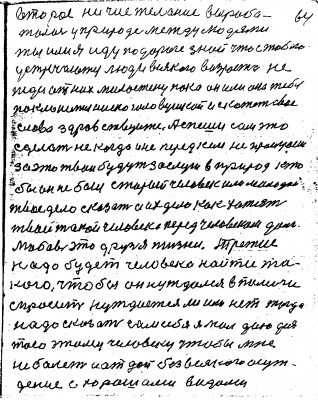 второе ни чие желание вырабо- 64
талас у природе между людями
ты имя иду по дороге знай что с тобою
устречаютц люди всякого возраста не
жди от них милостину пока он или она тебе
поклонитца своею головушкой и скажет свое
слово здравствуйте. А спеши сам это
сделат не когда оне пред кем не
за это твои будут заслуги в природе кто
бы он не был старый человек или молодой
твое дело сказат а их дело как хотят
твой такой человеко перед человеком долг.
Любов это друзя жизни. Третие
надо будет человека найти та-
кого, чтобы он нуждался в помочи
спросит нуждаетси ли или нет тогда
надо сказат сам себя я мол даю для
того этому человеку чтобы мне
не болет и отдай без всякого осуж-
дение с хорошими видами